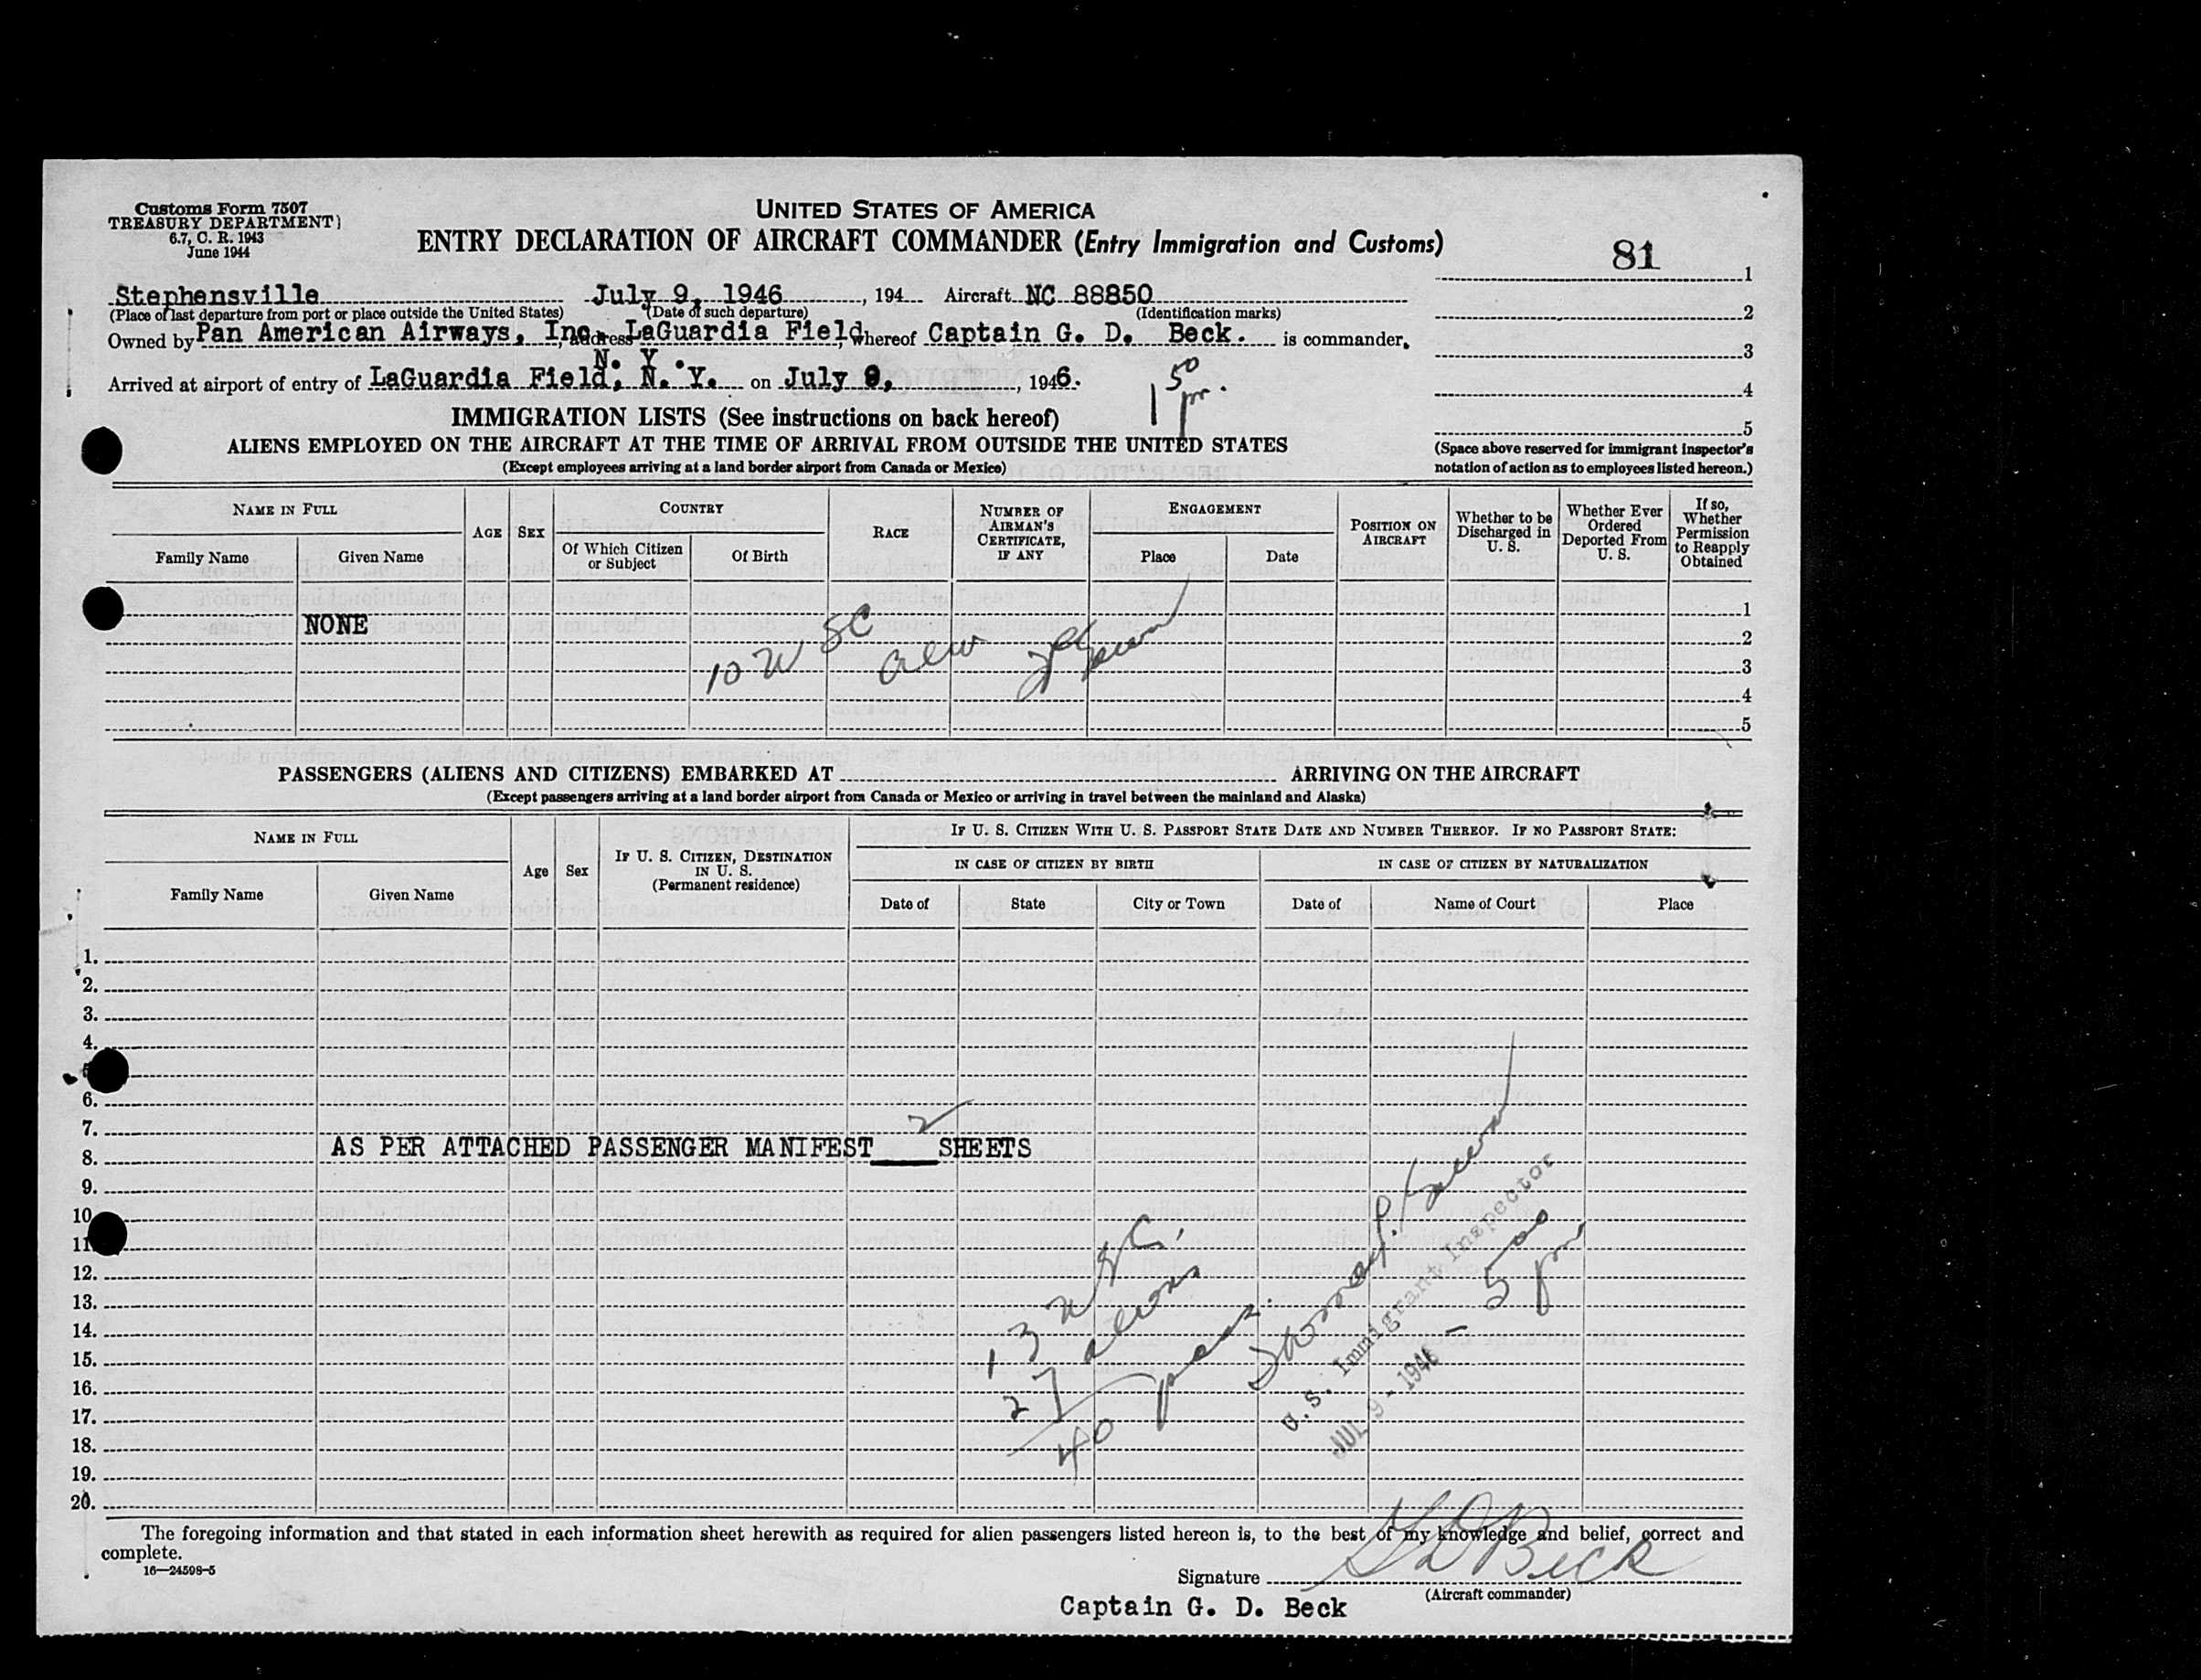 Customs Form 7507
TREASURY DEPARTMENT)
6.7, C. R. 1943
June 1944
UNITED STATES OF AMERICA
ENTRY DECLARATION OF AIRCRAFT COMMANDER (Entry Immigration and Customs)
81
1
2
3
4
5
Stephensville July 9, 1946, 194 Aircraft NC 88850
(Place of last departure from port or place outside the United States) (Date of such departure) (Identification marks)
Owned by Pan American Airways, Inc. address LaGuardia Field, whereof Captain G. D. Beck. is commander,
N. Y.
Arrived at airport of entry of LaGuardia Field, N. Y. on July 9, 1946.
1 50 pm.
IMMIGRATION LISTS (See instructions on back hereof)
ALIENS EMPLOYED ON THE AIRCRAFT AT THE TIME OF ARRIVAL FROM OUTSIDE THE UNITED STATES
(Except employees arriving at a land border airport from Canada or Mexico)
(Space above reserved for immigrant inspector's
notation of action as to employees listed hereon.)
NAME IN FULL
Family Name
Given Name
AGE
SEX
COUNTRY
Of Which Citizen
or Subject
Of Birth
RACE
NUMBER OF
AIRMAN'S
CERTIFICATE,
IF ANY
ENGAGEMENT
Place
Date
POSITION ON
AIRCRAFT
Whether to be
Discharged in
U. S.
Whether Ever
Ordered
Deported From
U. S.
If so,
Whether
Permission
to Reapply
Obtained
1
NONE
2
3
4
5
10 U SC
PASSENGERS (ALIENS AND CITIZENS) EMBARKED AT ARRIVING ON THE AIRCRAFT
(Except passengers arriving at a land border airport from Canada or Mexico or arriving in travel between the mainland and Alaska)
NAME IN FULL
Family Name
Given Name
Age
Sex
IF U. S. CITIZEN, DESTINATION
IN U. S.
(Permanent residence)
IF U. S. CITIZEN WITH U. S. PASSPORT STATE DATE AND NUMBER THEREOF. IF NO PASSPORT STATE:
IN CASE OF CITIZEN BY BIRTH
Date of
State
City or Town
IN CASE OF CITIZEN BY NATURALIZATION
Date of
Name of Court
Place
1.
2.
3.
4.
6.
7.
AS PER ATTACHED PASSENGER MANIFEST 2 SHEETS
8.
9.
10
11
12.
13.
14.
15.
16.
17.
18.
19.
20.
13 USC.
27 aliens
40 pass.
U. S. Immigrant Inspector
JUL 9 - 1946 - 5 00 pm
The foregoing information and that stated in each information sheet herewith as required for alien passengers listed hereon is, to the best of my knowledge and belief, correct and
complete.
16—24598-5
Signature G D Beck
(Aircraft commander)
Captain G. D. Beck